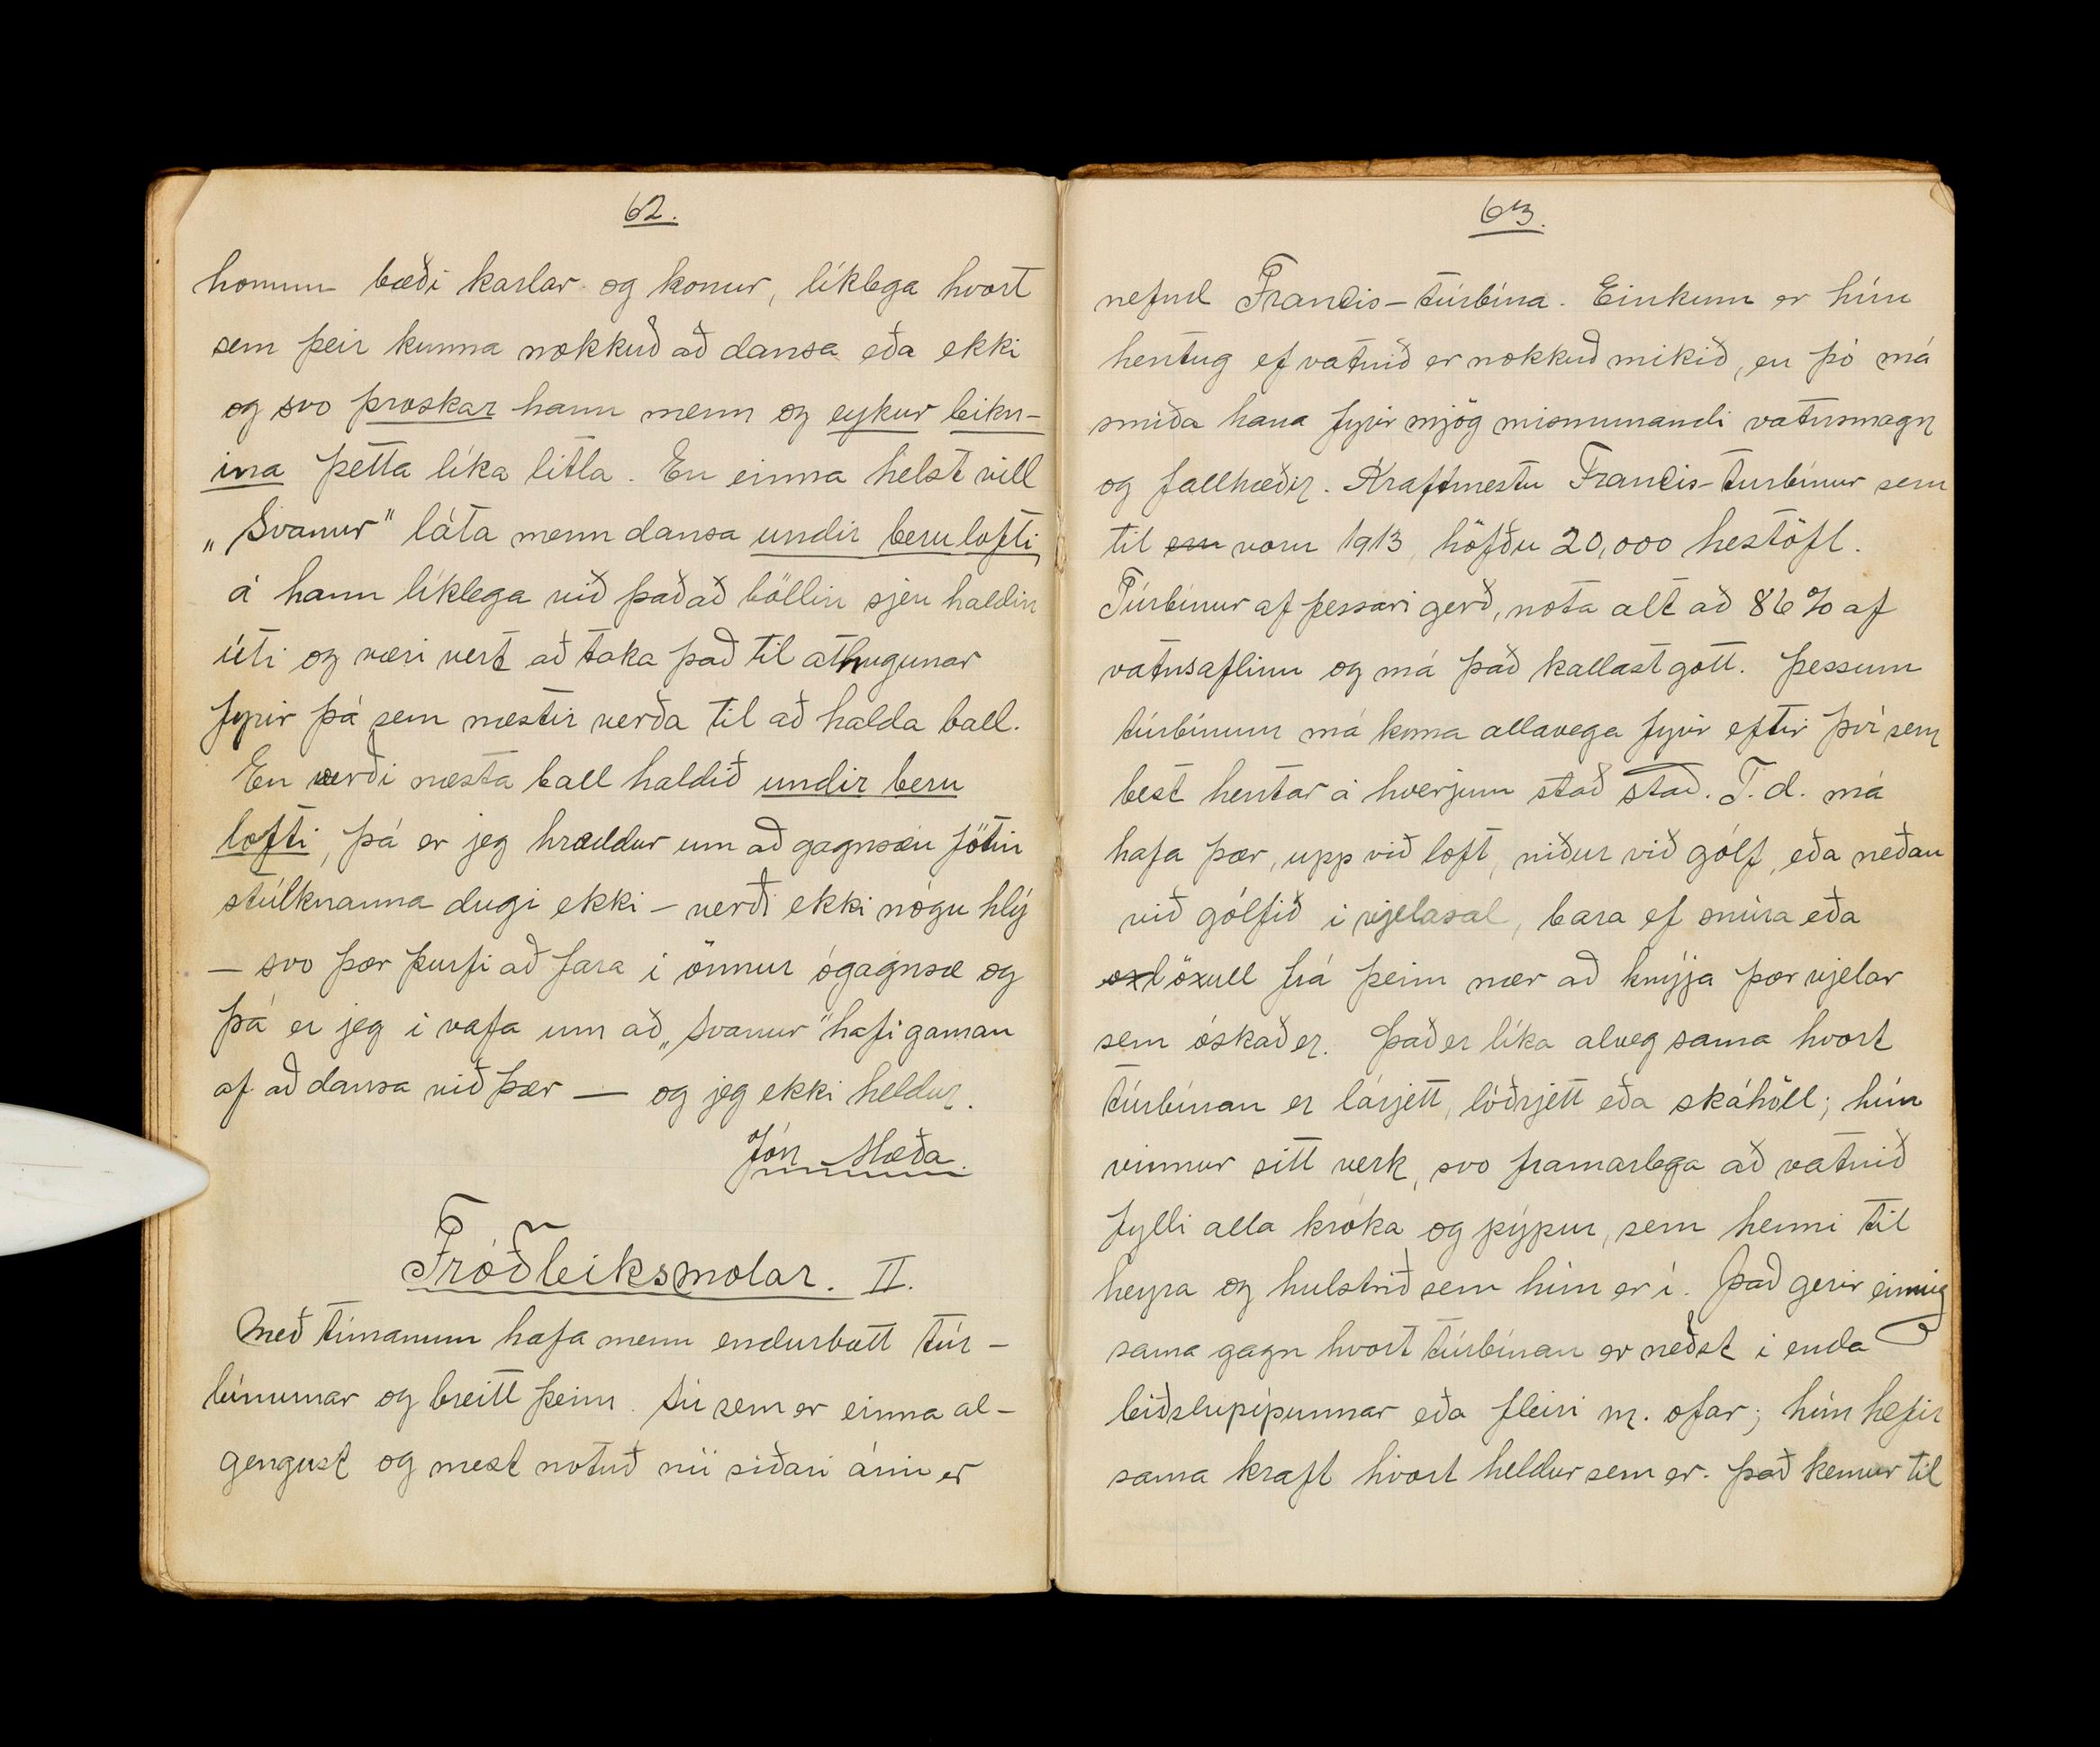 62.
honum bæði karlar og konur, líklega hvort
sem þeir kunna nokkuð að dansa eða ekki
og svo þroskar hann menn og eykur leikn-
ina þetta líka litla. En einna helst vill
„Svanur" láta menn dansa undir beru lofti,
á hann líklega við það að böllin sjeu haldin
úti og væri vert að taka það til athugunar
fyrir þá sem næstir verða til að halda ball.
En verði næsta ball haldið undir beru
lofti, þá er jeg hræddur um að gagnsæu fötin
stúlknanna dugi ekki – verði ekki nógu hlý
– svo þær þurfi að fara í önnur ógagnsæ og
þá er jeg í vafa um að „Svanur" hafi gaman
af að dansa við þær — og jeg ekki heldur.
Jón Mæða.
Fróðleiksmolar. II.
Með tímanum hafa menn endurbætt túr-
bínurnar og breitt þeim. Sú sem er einna al-
gengust og mest notuð nú síðari árin er
63.
nefnd Francis-túrbína. Einkum er hún
hentug ef vatnið er nokkuð mikið, en þó má
smíða hana fyrir mjög mismunandi vatnsmagn
og fallhæðir. Kraftmestu Francis-turbínur sem
til em voru 1913, höfðu 20,000 hestöfl.
Túrbínur af þessari gerð, nota alt að 86% af
vatnsaflinu og má það kallast gott. Þessum
túrbínum má koma allavega fyrir eftir því sem
best hentar á hverjum stað stað. T.d. má
hafa þær, upp við loft, niður við gólf, eða neðan
við gólfið í vjelasal, bara ef snúra eða
oxl öxull frá þeim nær að knýja þær vjelar
sem óskað er. Það er líka alveg sama hvort
túrbínan er lárjett, lóðrjett eða skáhöll; hún
vinnur sitt verk, svo framarlega að vatnið
fylli alla króka og pýpur, sem henni til
heyra og hulstrið sem hún er í. Það gerir einnig
sama gagn hvort túrbínan er neðst í enda
leiðslupípunnar eða fleiri m. ofar; hún hefir
sama kraft hvort heldur sem er. Það kemur til